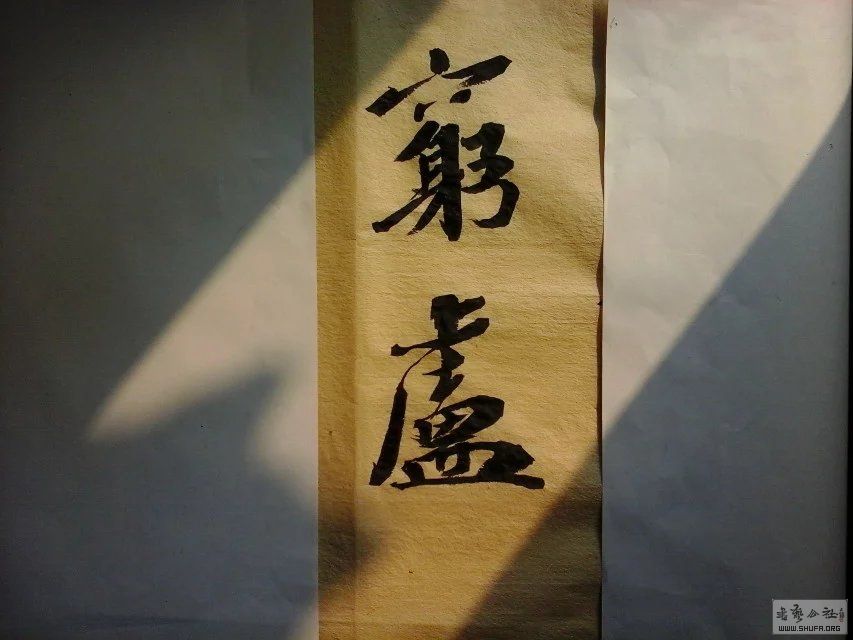 窮
盧
書藝公社
WWW.SHUFA.ORG